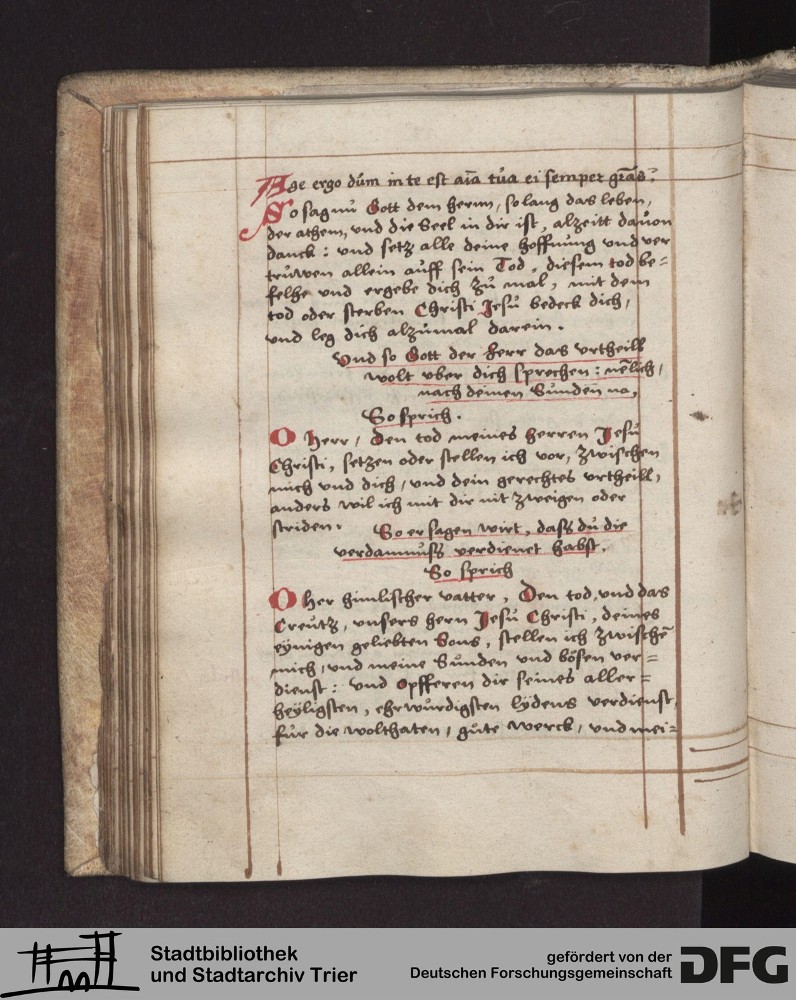 Age ergo dũm in te est aĩa tũa ei semper grãs:
So sag nũ Gott dem herrnn, so lang das leben,
der athem, vnd die Seel in dir ist, alzeitt dauon
danck: vnd setz alle deine hoffnũng vnd ver
trũwen allein aũff sein Tod, diesem tod be=
felhe vnd ergebe dich zũ mal, mit dem
tod oder sterben Christi Jesũ bedeck dich,
vnd leg dich alzũmal darein.
Vnd so Gott der herr das vrtheill
wolt vber dich sprechen: nẽlich,
nach deinen Sũnden na,
So sprich.
O Herr, Den tod meines herren Jesũ
Christi, setzen oder stellen ich vor, zwischen
mich vnd dich, vnd dein gerechtes vrtheill,
anders wil ich mit dir nit zweigen oder
striden.
So er sagen wirt, dass dũ die
verdamnũss verdienet habst.
So sprich
O Her himlischer vatter, Den tod, vnd das
Creũtz, vnsers hern Jesũ Christi, deines
eÿnigen geliebten Sons, stellen ich zwischẽ
mich, vnd meine Sũnden vnd bösen ver=
dienst: vnd Opfferen dir seines aller=
heÿligsten, ehrwũrdigsten lÿdens verdienst,
fũr die wolthaten, gũte werck, vnd mei=
Stadtbibliothek
und Stadtarchiv Trier
gefördert von der
Deutschen Forschungsgemeinschaft
DFG